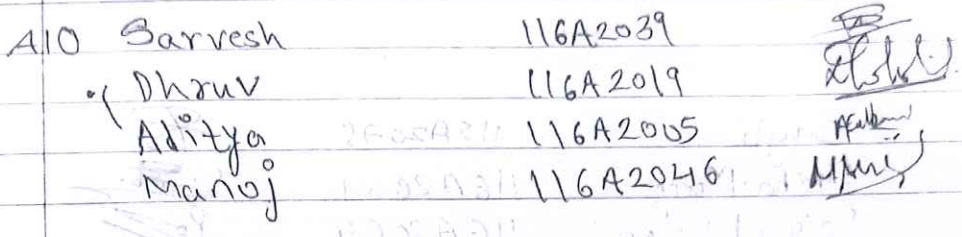 A10 Sarvesh 116A2039
Dhruv 116A2019
Aditya 116A2005
Manoj 116A2046